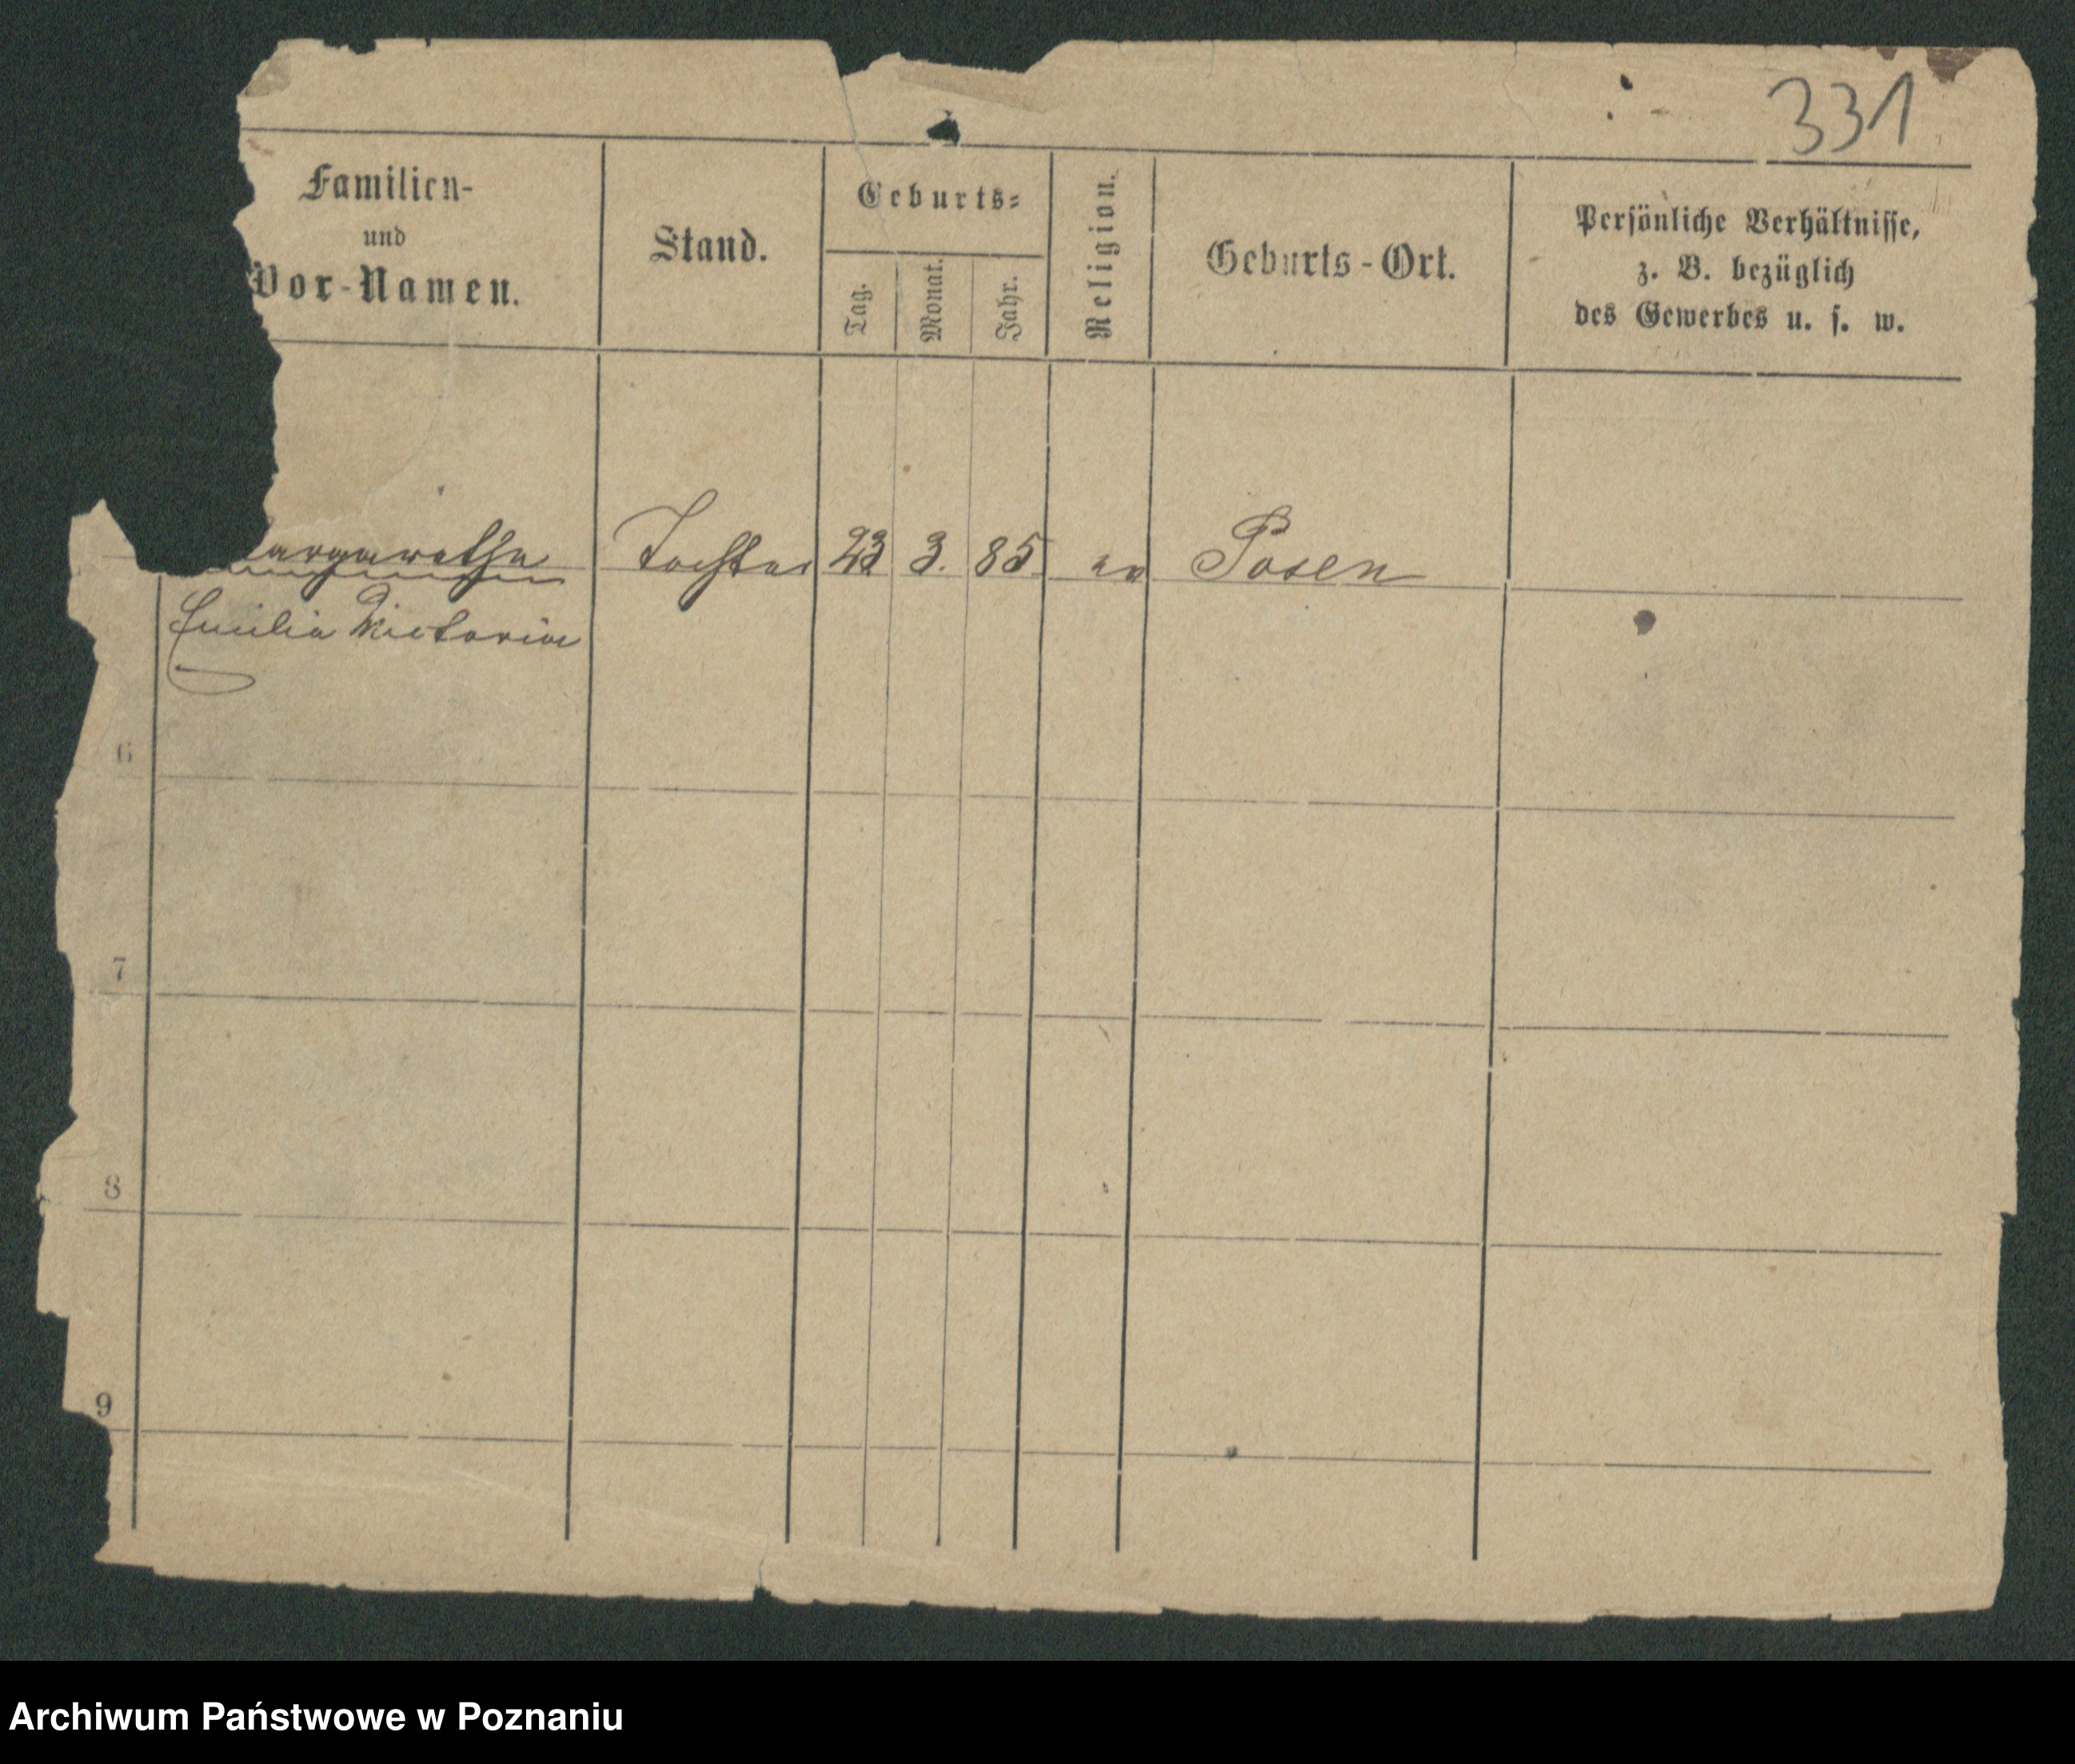 331
Familien-
und
Vor-Namen.
Stand.
Geburts-
Tag.
Monat.
Jahr.
Religion.
Geburts-Ort.
Persönliche Verhältnisse,
z. B. bezüglich
des Gewerbes u. s. w.
argaretha Tochter 23 3. 85 ev Posen
Emilia Victoria
6
7
8
9
Archiwum Państwowe w Poznaniu